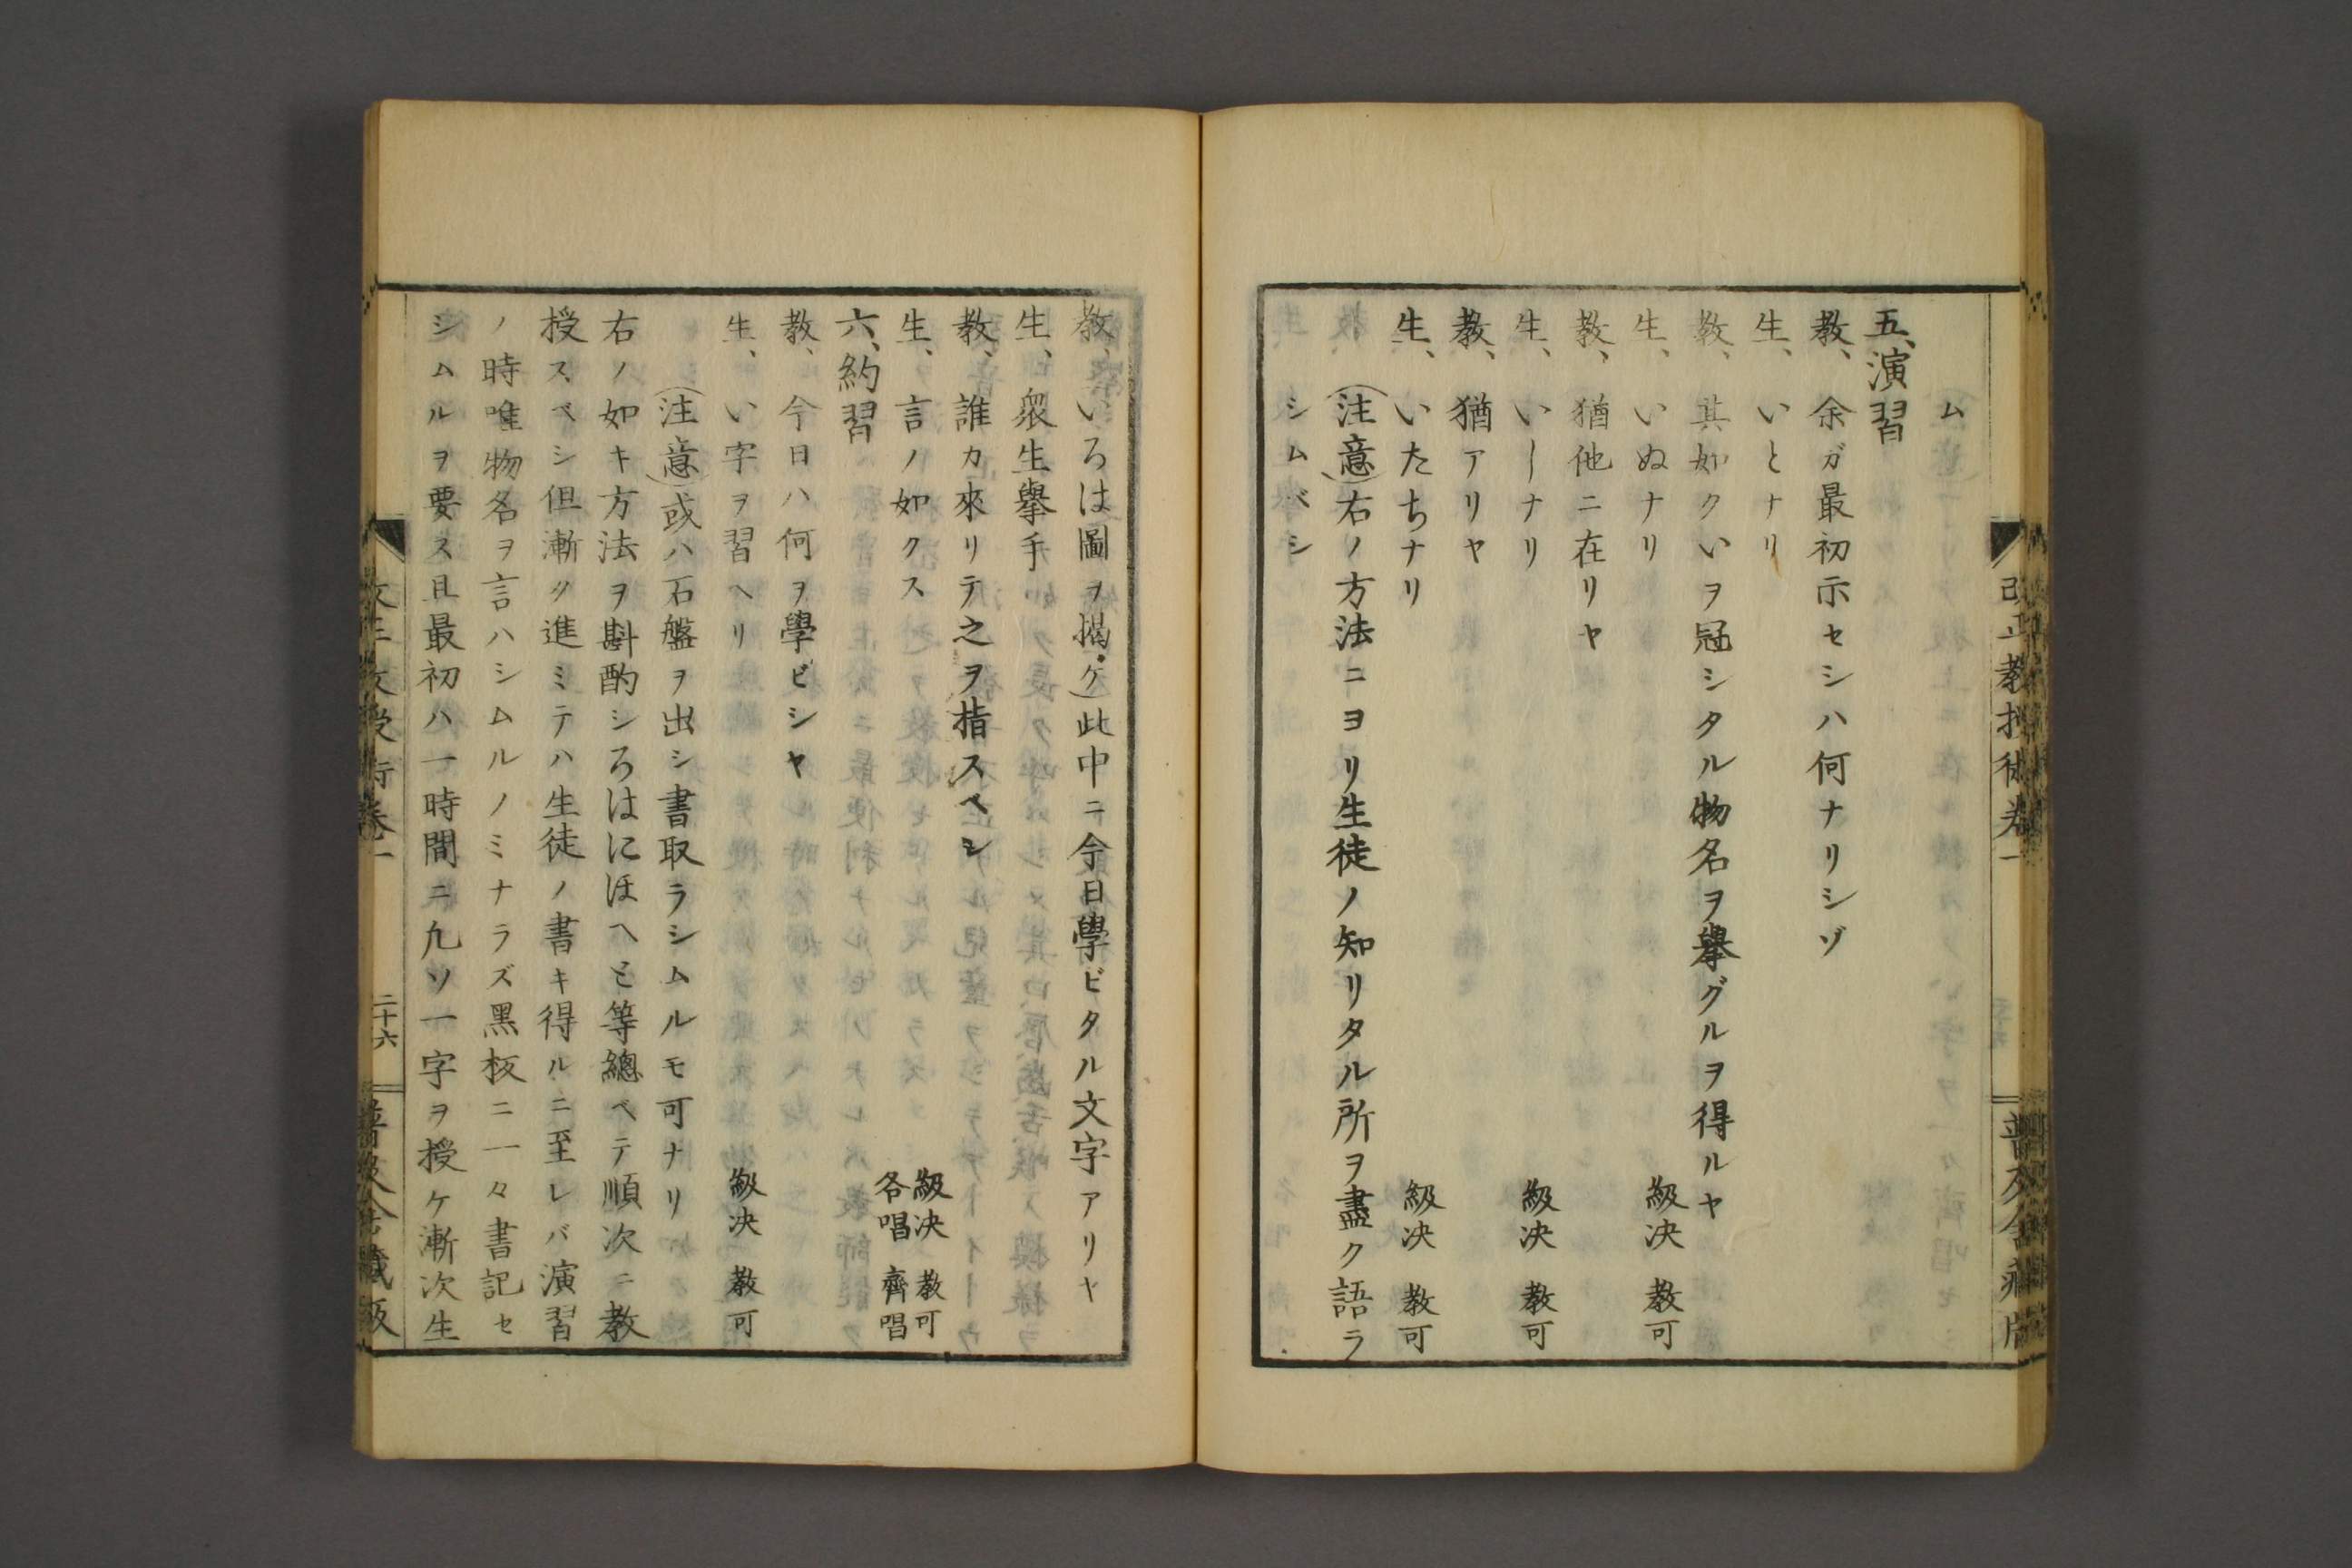 ム
五、演習
教、余ガ最初示セシハ何ナリシゾ
生、いとナリ
教、其如クいヲ冠シタル物名ヲ擧グルヲ得ルヤ
生、いぬナリ 級决 教可
教、猶他ニ在リヤ
生、いしナリ 級决 教可
教、猶アリヤ
生、いたちナリ 級决 教可
(注意)右ノ方法ニヨリ生徒ノ知リタル所ヲ盡ク語ラ
シムベシ
教、いろは圖ヲ揭ゲ)此中ニ今日學ビタル文字アリヤ
生、衆生擧手
教、誰カ來リテ之ヲ指スベシ
生、言ノ如クス 級决 教可 各唱 齊唱
六、約習
教、今日ハ何ヲ學ビシヤ
生、い字ヲ習ヘリ 級决 教可
(注意)或ハ石盤ヲ出シ書取ラシムルモ可ナリ
右ノ如キ方法ヲ斟酌シろはにほへと等總ベテ順次ニ教
授スベシ但漸ク進ミテハ生徒ノ書キ得ルニ至レバ演習
ノ時唯物名ヲ言ハシムルノミナラズ黑板ニ一々書記セ
シムルヲ要ス且最初ハ一時間ニ凡ソ一字ヲ授ケ漸次生
改正教授術卷一
二十六
普及舍藏版